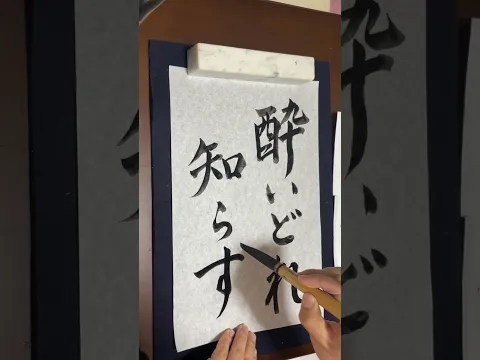 酔いどれ
知らず